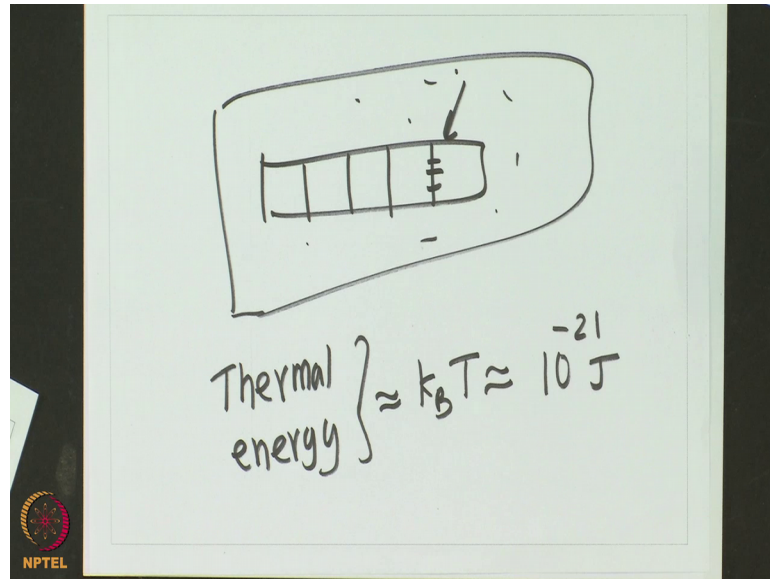 Thermal energy } ≈ k_B T ≈ 10^-21 J
NPTEL